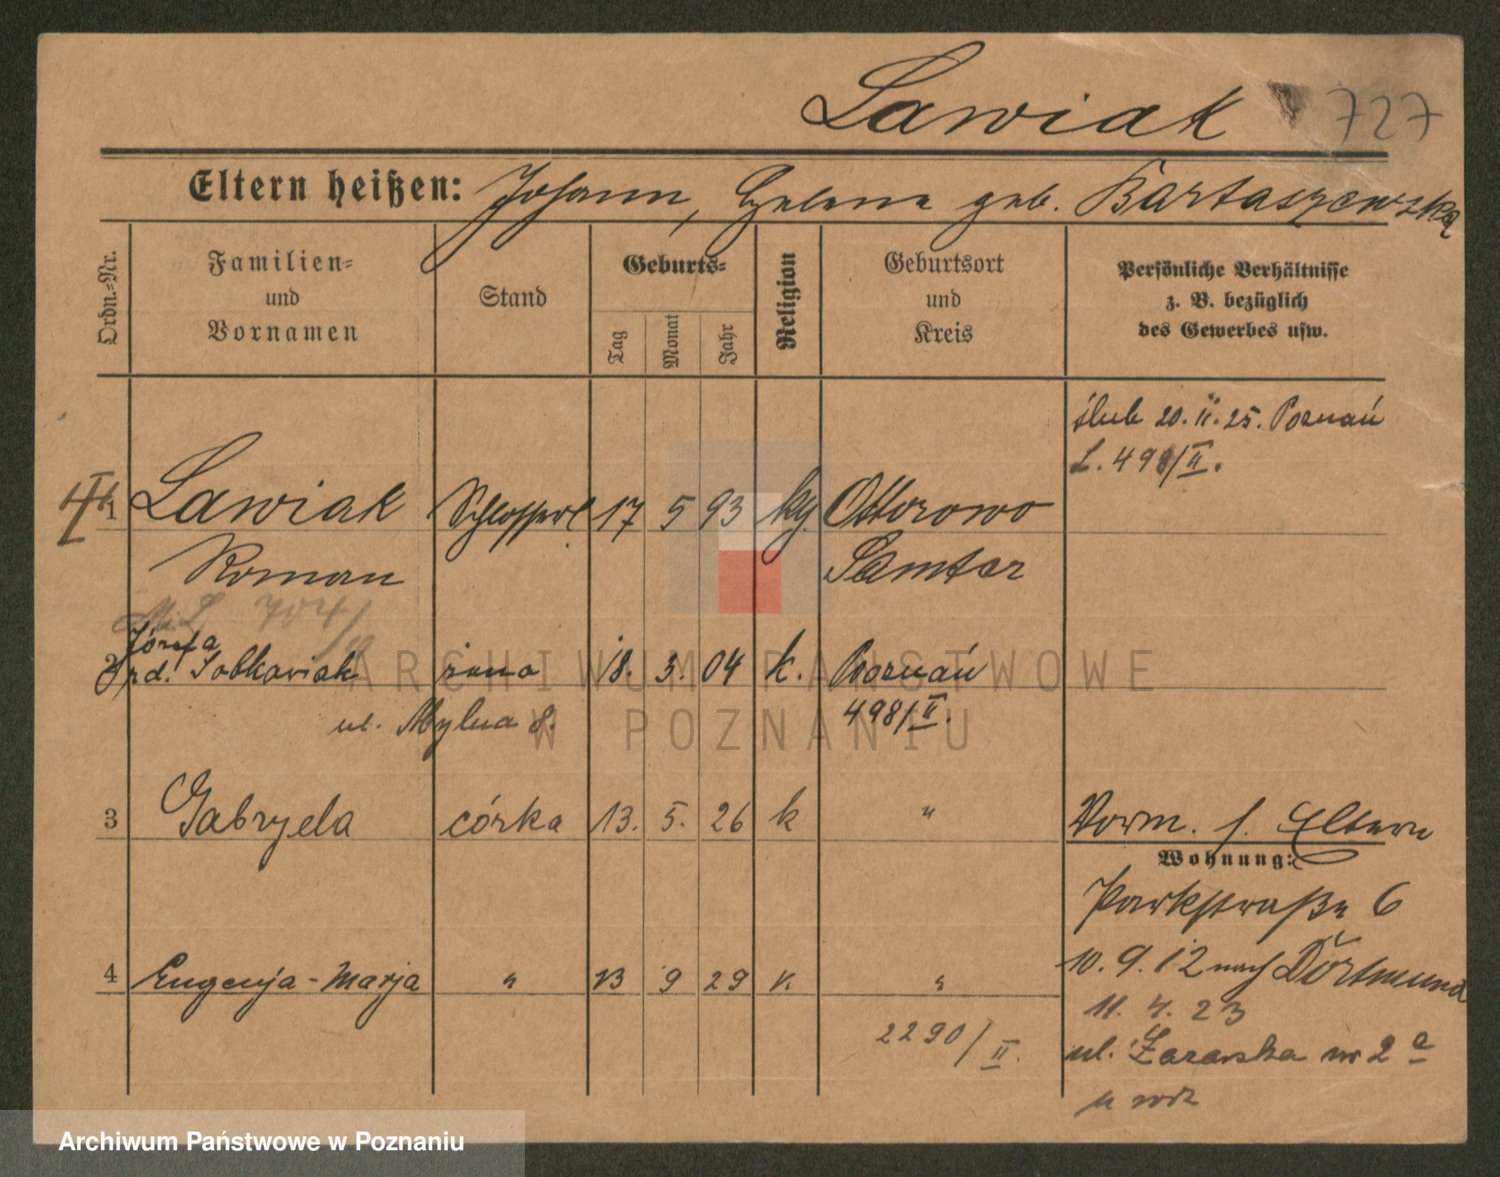 Lawiak 727
Eltern heißen: Johann, Helena geb. Bartaszewska
Ordn.-Nr.
Familien- und Vornamen
Stand
Geburts-
Tag
Monat
Jahr
Religion
Geburtsort und Kreis
Persönliche Verhältnisse
z. B. bezüglich
des Gewerbes usw.
ślub 20. II. 25. Poznań
L. 498/II.
1 Lawiak Schlosserl. 17 5 93 kg. Ottorowo
Roman Samter
704/
Józefa
2 rd. Sobkowiak żona 18. 3. 04 k. Poznań
ul. Mylna 8. 498/II.
3 Gabryela córka 13. 5. 26 k "
Vorm. s. Eltern
Wohnung:
Parkstraße 6
10. 9. 12 nach Dortmund
4 Eugenja-Marja " 13 9 29 k. "
11. 4. 23
2290/II.
ul. Żórawska nr 2a
ARCHIWUM PAŃSTWOWE
W POZNANIU
Archiwum Państwowe w Poznaniu